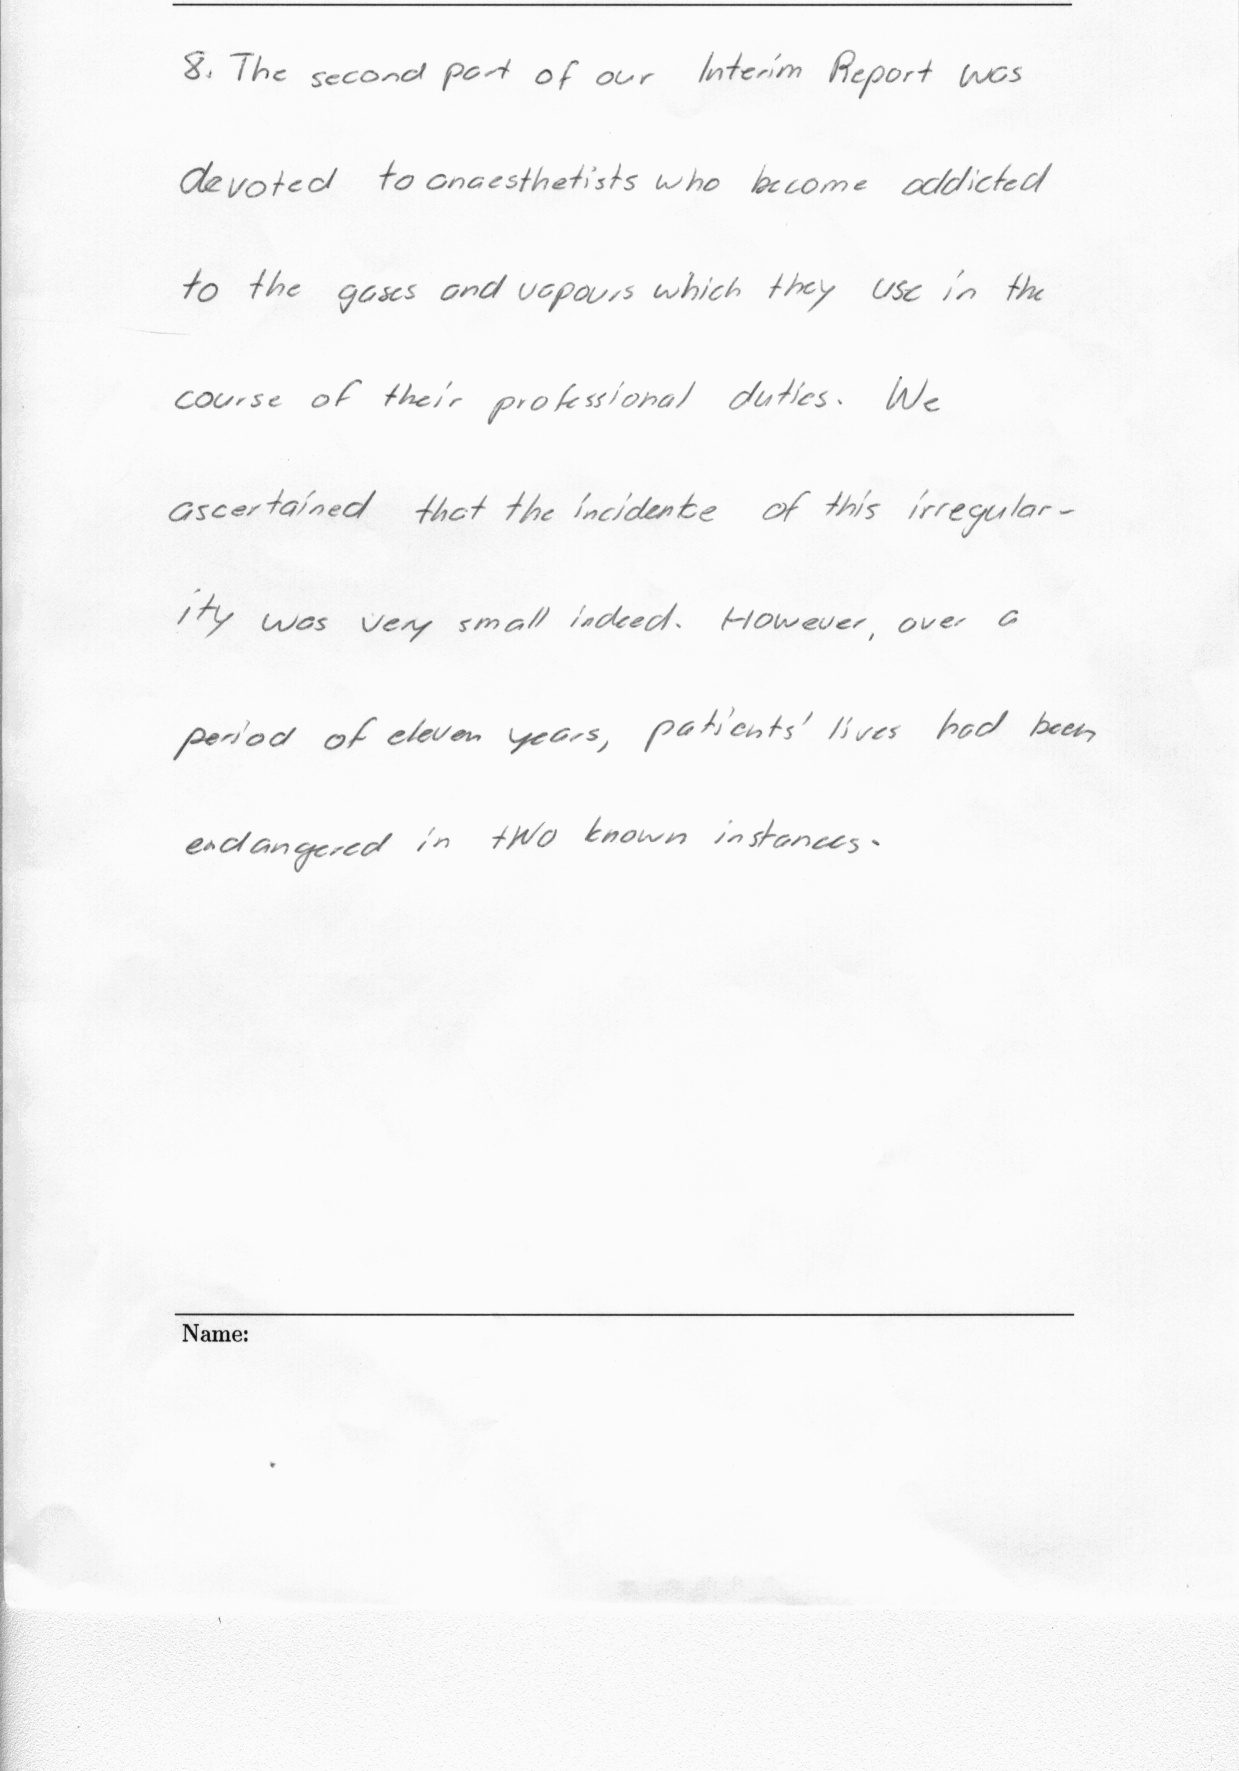 8. The second part of our Interim Report was
devoted to anaesthetists who become addicted
to the gases and vapours which they use in the
course of their professional duties. We
ascertained that the incidence of this irregular-
ity was very small indeed. However, over a
period of eleven years, patients' lives had been
endangered in two known instances.
Name: